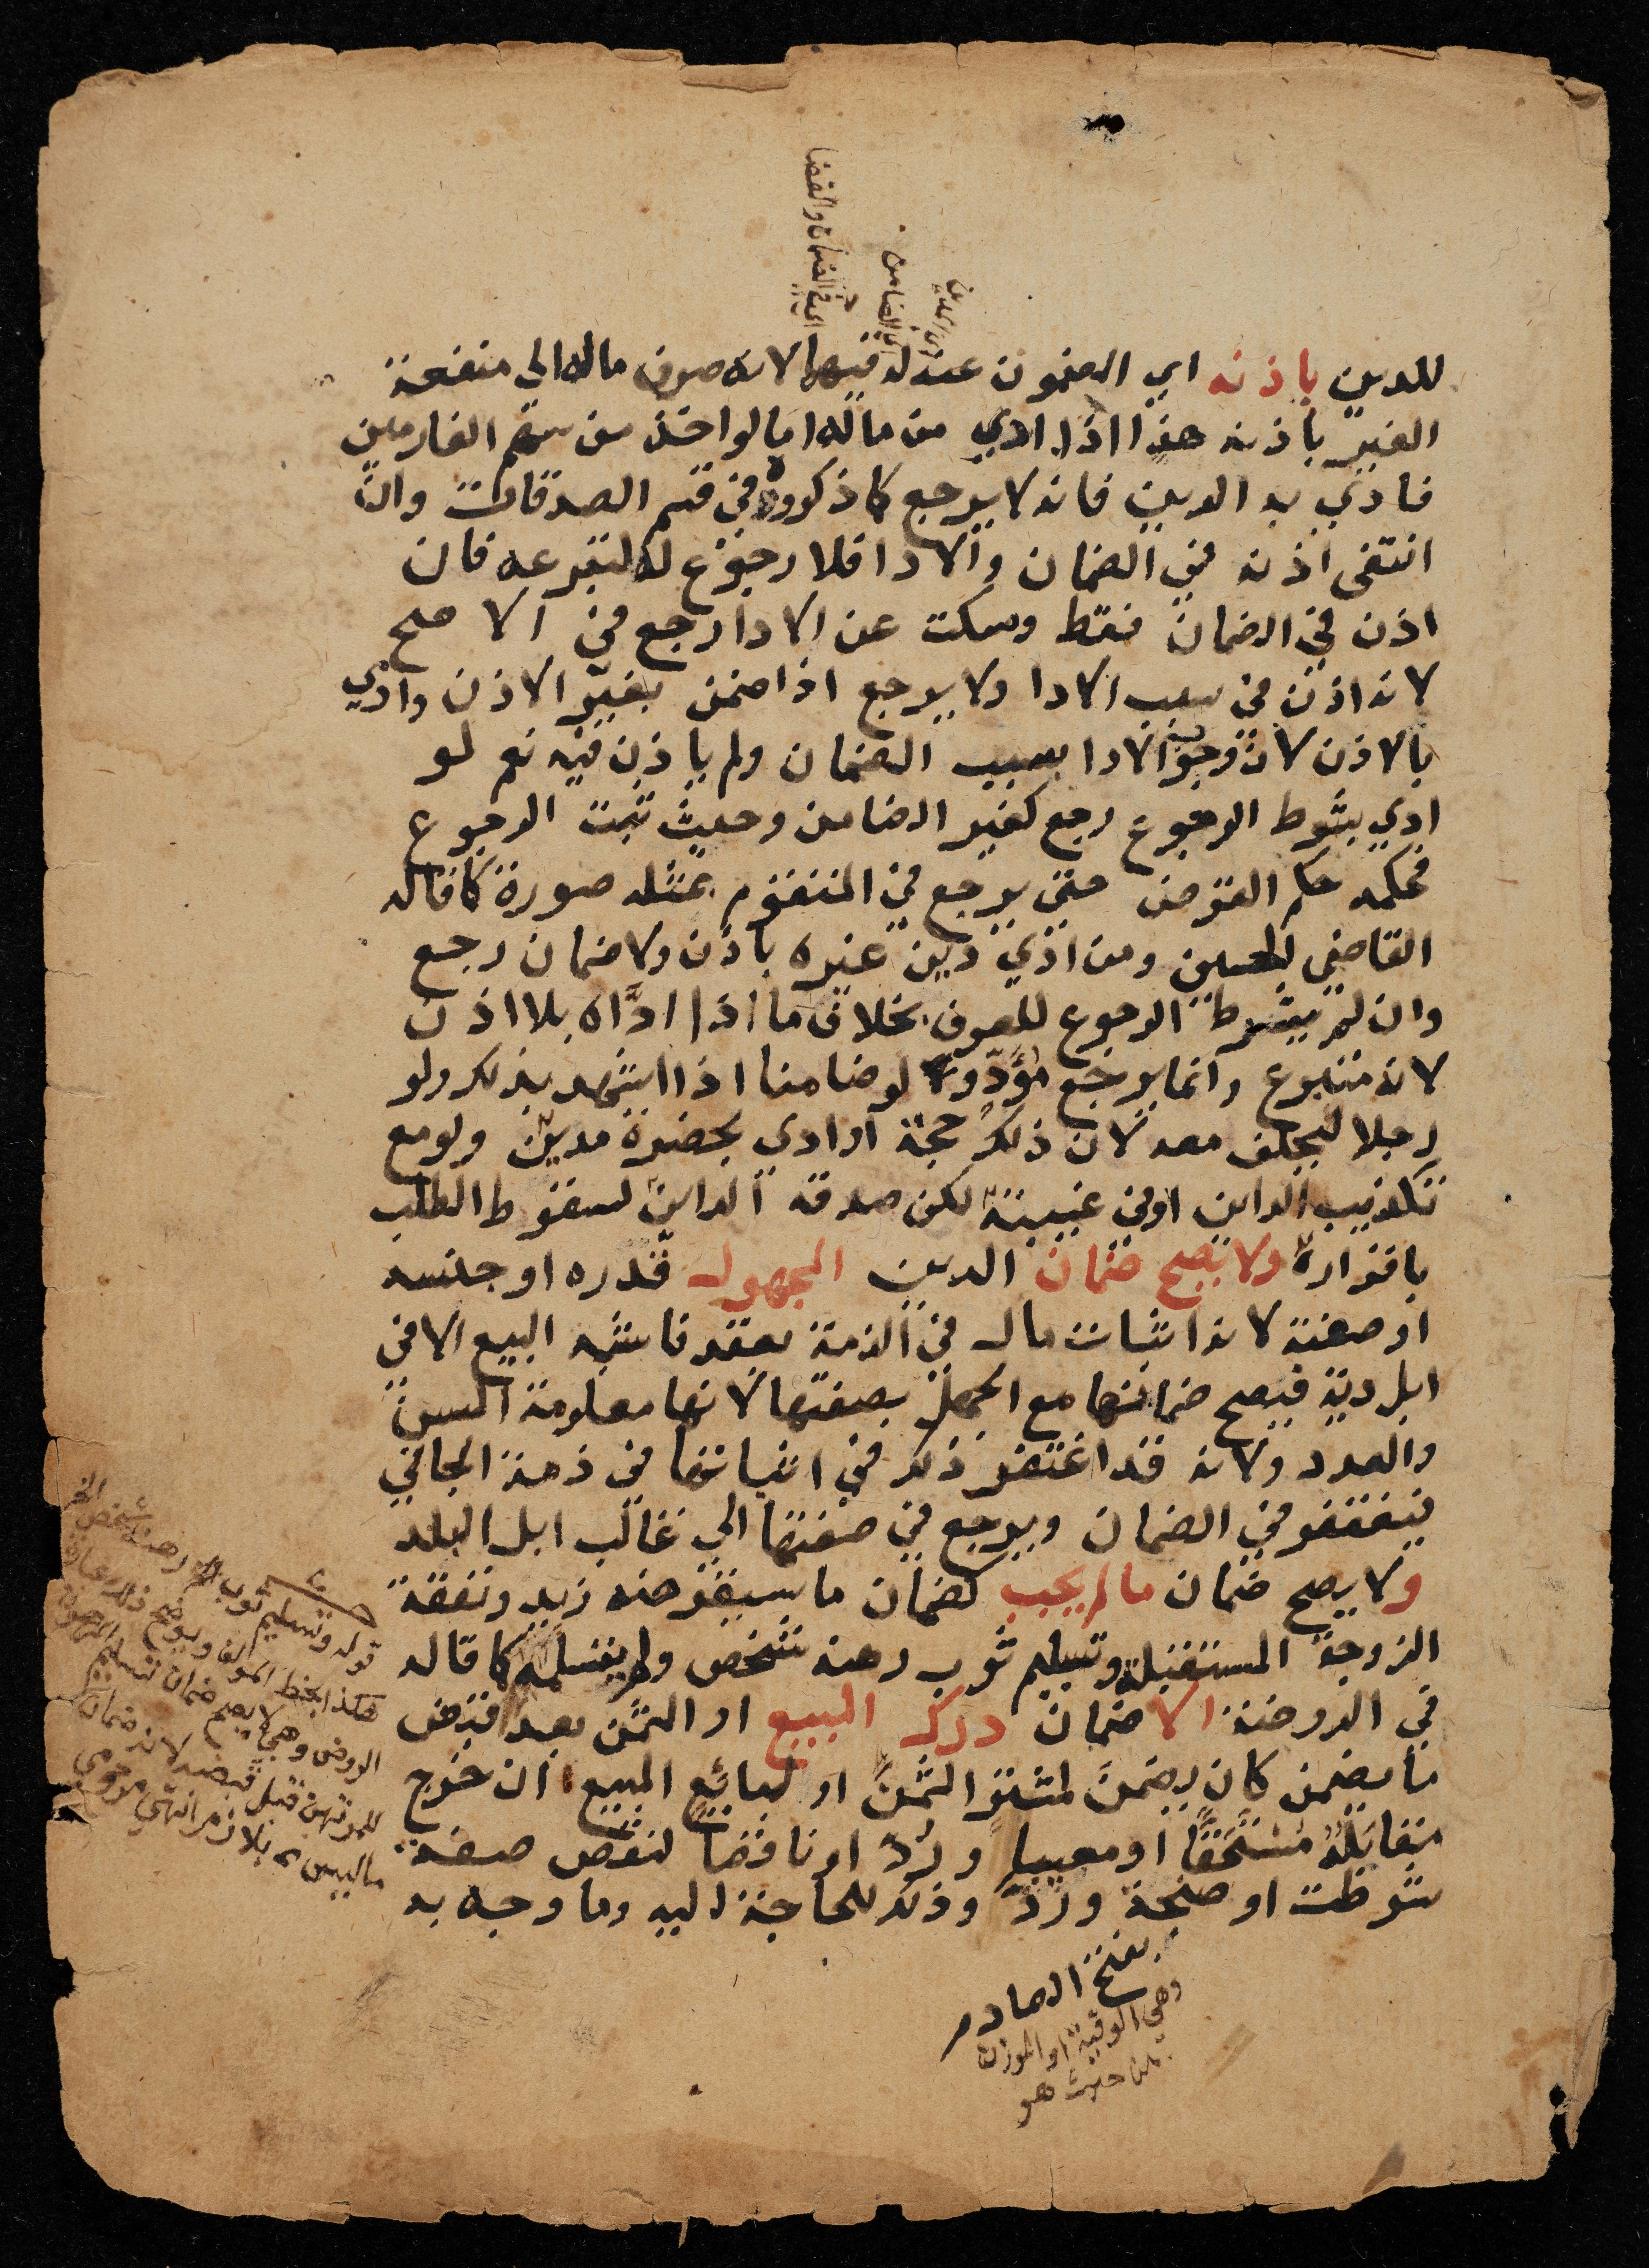 اي في الضمان والقضا
اي الضامن
اي الدين
للدين باذنه اي المضمون عنه له فيهما لانه صرف ماله الي منفعة
الغير باذنه هذا اذا ادي من ماله اما لو اخذ من سهم الغارمين
فادي به الدين فانه لا يرجع كما ذكروه في قسم الصدقات وان
انتفى اذنه في الضمان والادا فلا رجوع له لتبرعه فان
اذن في الضمان فقط وسكت عن الادا رجع في الاصح
لانه اذن في سبب الادا ولا يرجع اذا ضمن بغير الاذن وادي
بالاذن لان وجوب الادا بسبب الضمان ولم ياذن فيه نعم لو
ادي بشرط الرجوع رجع كغير الضامن وحيث ثبت الرجوع
فحكمه حكم القرض حتى يرجع في المتقوم بمثله صورة كما قاله
القاضي الحسين ومن ادي دين غيره باذن ولا ضمان رجع
وان لم يشرط الرجوع للعرف بخلاف ما اذا ادَّاه بلا اذن
لانه متبرع وانما يرجع مؤدّ ولو ضامنا اذا اشهد بذلك ولو
رجلا ليحلف معه لان ذلك حجة او ادى بحضرة مدين ولو مع
تكذيب الداين او في غيبته لكن صدقه الداين لسقوط الطلب
باقراره ولا يصح ضمان الدين المجهول قدره او جنسه
او صفته لانه اثبات مال في الذمة بعقد فاشبه البيع الا في
ابل دية فيصح ضمانها مع الجهل بصفتها لانها معلومة السن
والعدد ولانه قد اغتفر ذلك في اثباتها في ذمة الجاني
فيغتفر في الضمان ويرجع في صفتها الي غالب ابل البلد
ولا يصح ضمان ما لم يجب كضمان ما سيقرضه زيد ونفقة
الزوجة المستقبلة وتسليم ثوب رهنه شخص ولم يتسلمه كما قاله
في الروضة الا ضمان درك المبيع او الثمن بعد قبض
ما يضمن كان يضمن لمشتر الثمن او لبائع المبيع ان خرج
مقابله مُسْتَحَقًّا او معيبا ورُدّ او ناقصا لنقص صفة
شرطت او صنجة ورُدّ وذلك للحاجة اليه وما وجه به
قوله وتسليم ثوب رهنه شخص الخ
هكذا بخط المولف ويوضح ذلك عبارة
الروض وهي لا يصح ضمان تسليم المرهون
للمرتهن قبل قبضه لانه ضمان
ما ليس بلازم انتهى مرحومي
بفتح الصاد م
وهي الوقية او الموزان
من حيث هو